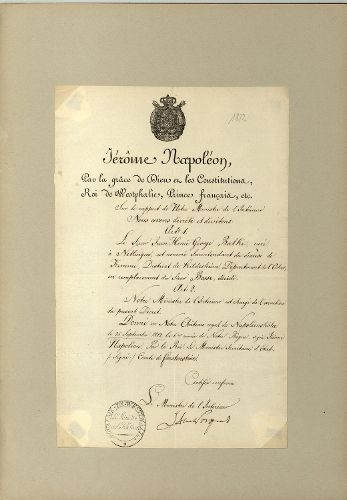 1812
Jérôme Napoléon,
Par la grâce de Dieu et les Constitutions,
Roi de Westphalie, Prince français, etc.
Sur le rapport de Notre Ministre de l'Intérieur
Nous avons décrété et décrétons
Art. 1.
Le Sieur Jean Henri George Bathe, curé
à Nettlingen, est nommé Surintendant du diocèse de
District de Hildesheim Département de l'Oker,
en remplacement du Sieur décédé
Art. 2.
Notre Ministre de l'Intérieur est chargé de l'exécution
du présent Décret.
Donné en Notre Château royal de Napoléonshöhe
le 25 Septembre 1812, de Notre Règne, signé Jérôme
Napoléon. Par le Roi, le Ministre Secrétaire d'État
signé Comte de Fürstenstein
Certifié conforme
Le Ministre de l'Intérieur